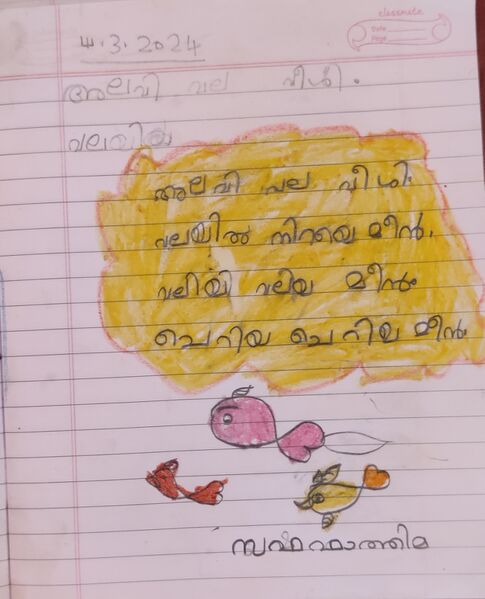 classmate
Date
Page
4.3.2024
അലവി വല വീശി.
വലയിയ
അലവി വല വീശി.
വലയിൽ നിറയെ മീൻ.
വലിയി വലിയ മീൻ
ചെറിയ ചെറിയ മീൻ